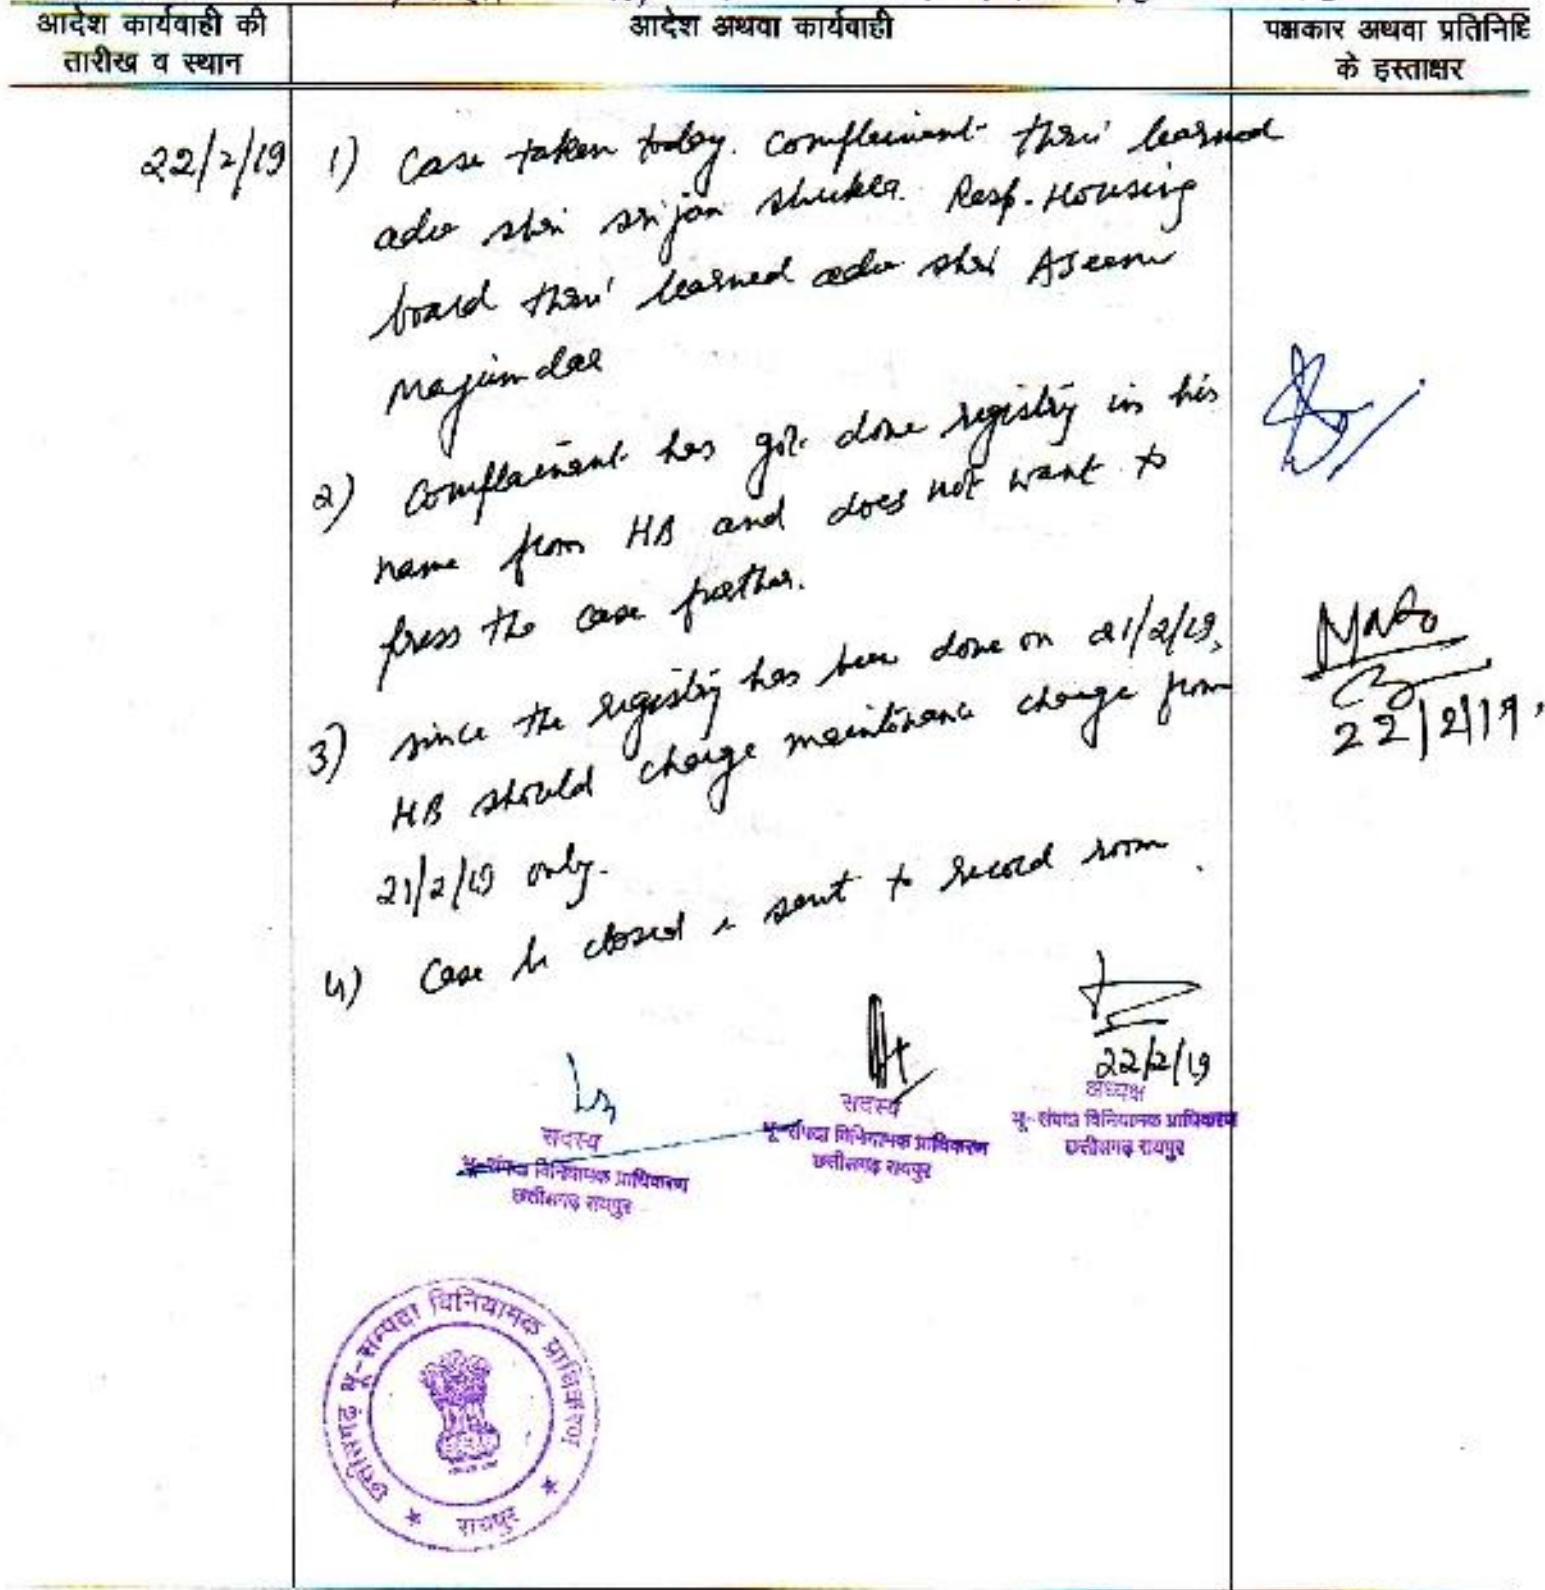 आदेश कार्यवाही की
तारीख व स्थान
आदेश अथवा कार्यवाही
पक्षकार अथवा प्रतिनिधि
के हस्ताक्षर
22/2/19
1) Case taken today. Complainant thru' learned
adv shri srijan shukla. Resp. Housing
board thru' learned adv shri Aseem
Majumdar
2) Complainant has got done registry in his
name from HB and does not want to
press the case further.
3) since the registry has been done on 21/2/19,
HB should charge maintenance charge from
21/2/19 only.
4) Case be closed & sent to record room.
22/2/19,
22/2/19
सदस्य
भू-संपदा विनियामक प्राधिकरण
छत्तीसगढ़ रायपुर
सदस्य
भू-संपदा विनियामक प्राधिकरण
छत्तीसगढ़ रायपुर
अध्यक्ष
भू-संपदा विनियामक प्राधिकरण
छत्तीसगढ़ रायपुर
छत्तीसगढ़ भू-सम्पदा विनियामक प्राधिकरण
रायपुर